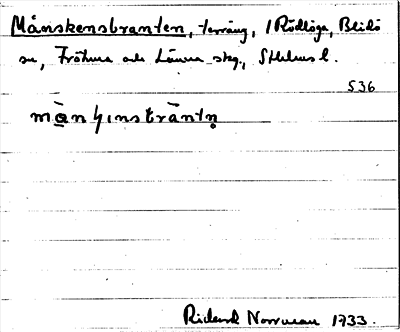 Månskensbranten, terräng, i Rödlöga, Blidö
sn, Fröhuna och Länna skg., Sthlms l.
536
Rickard Norrman 1933.